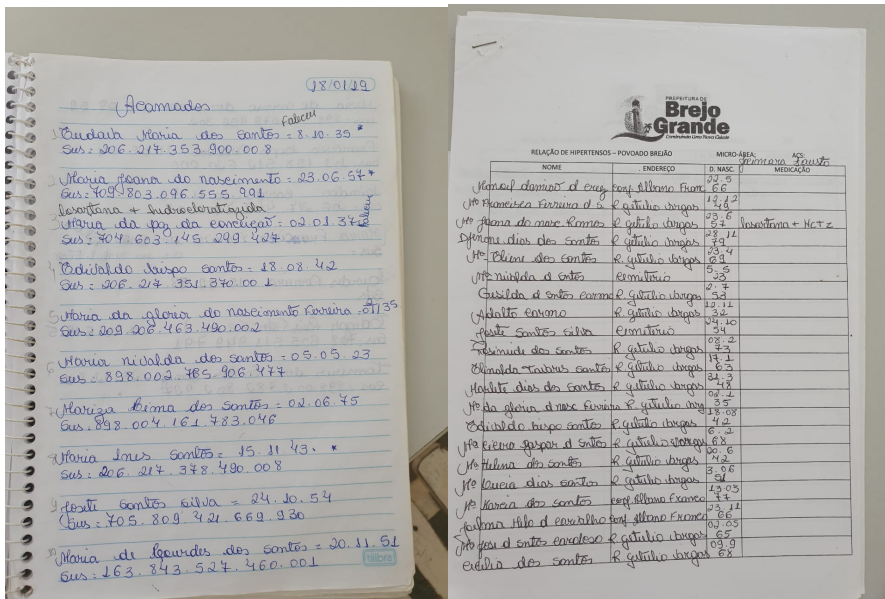 18/01/19
Acamados
Faliceu
1 Eudava Maria dos Santos = 8.10.35 *
Sus = 206.217.353.900.008
Maria Joana do nascimento = 23.06.57 *
Sus = 709.803.096.555.991
losartana + hidrocloratiquida
Maria da paz da conceição = 02.01.37 Faliceu
Sus = 704.603.145.299.427
4 Edivaldo bispo santos = 18.08.42
Sus = 206.217.351.370.001
5 Maria da gloria do nascimento Ferreira = 02/01/35
Sus = 209.206.463.490.002
6 Maria nivalda dos santos = 05.05.23
Sus = 898.002.765.906.477
7 Mariza Lima dos Santos = 02.06.75
Sus. 898.004.161.783.046
8 Maria Ines Santos = 15.11.43. *
Sus = 206.217.378.490.008
9 Josete Santos silva = 24.10.54
Sus = 705.809.421.669.930
10 Maria de Lourdes dos Santos = 20.11.51
Sus = 163.843.527.460.001
tilibra
PREFEITURA DE
Brejo
Grande
Construindo Uma Nova Cidade
RELAÇÃO DE HIPERTENSOS – POVOADO BREJÃO MICRO-ÁREA: ACS:
NOME ENDEREÇO D. NASC. MEDICAÇÃO
Manoel damião d cruz conj Albano Franc 22.5 66
Mª Francisca Ferreira d S R getulio vargas 12.12 49
Mª Joana do nasc. Ramos R getulio vargas 23.6 57 losartana + HCTZ
dias dos Santos R getulio vargas 28.11 79
Mª Eliene dos santos R. getulio vargas 23.4 69
Mª nivalda d sntos cemiterio 5.5 23
Gusilda d sntos carmo R. getulio vargas 2.7 53
Adalto carmo R. getulio vargas 12.11 32
Josete Santos silva cemiterio 24.10 54
dos santos R getulio vargas 08.2 73
santos R getulio vargas 17.1 63
Marlite dias dos santos R. getulio vargas 31.3 48
Mª da gloria d nasc Ferreira R. getulio varg 02.1 35
Edivaldo bispo santos R getulio vargas 18.08 42
Mª cicera gaspar d sntos R getulio vargas 6.2 68
Mª Helena dos santos R getulio vargas 20.6 42
Mª Lucia dias santos R getulio vargas 3.06 51
Mª Marcia dos santos conj Albano Franco 13.03 77
Melo d carvalho conj Albano Franco 23.11 66
Mª jose d sntos cardoso R. getulio vargas 02.05 65
cicilia dos santos R getulio vargas 09.9 68